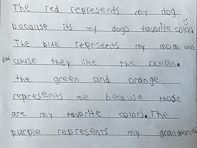 The red represents my dog
because its my dogs favorite color.
The blue reprsents my mom and
cause they like the ocean.
the green and orange
represents me because those
are my favorite colors. The
purple represents my